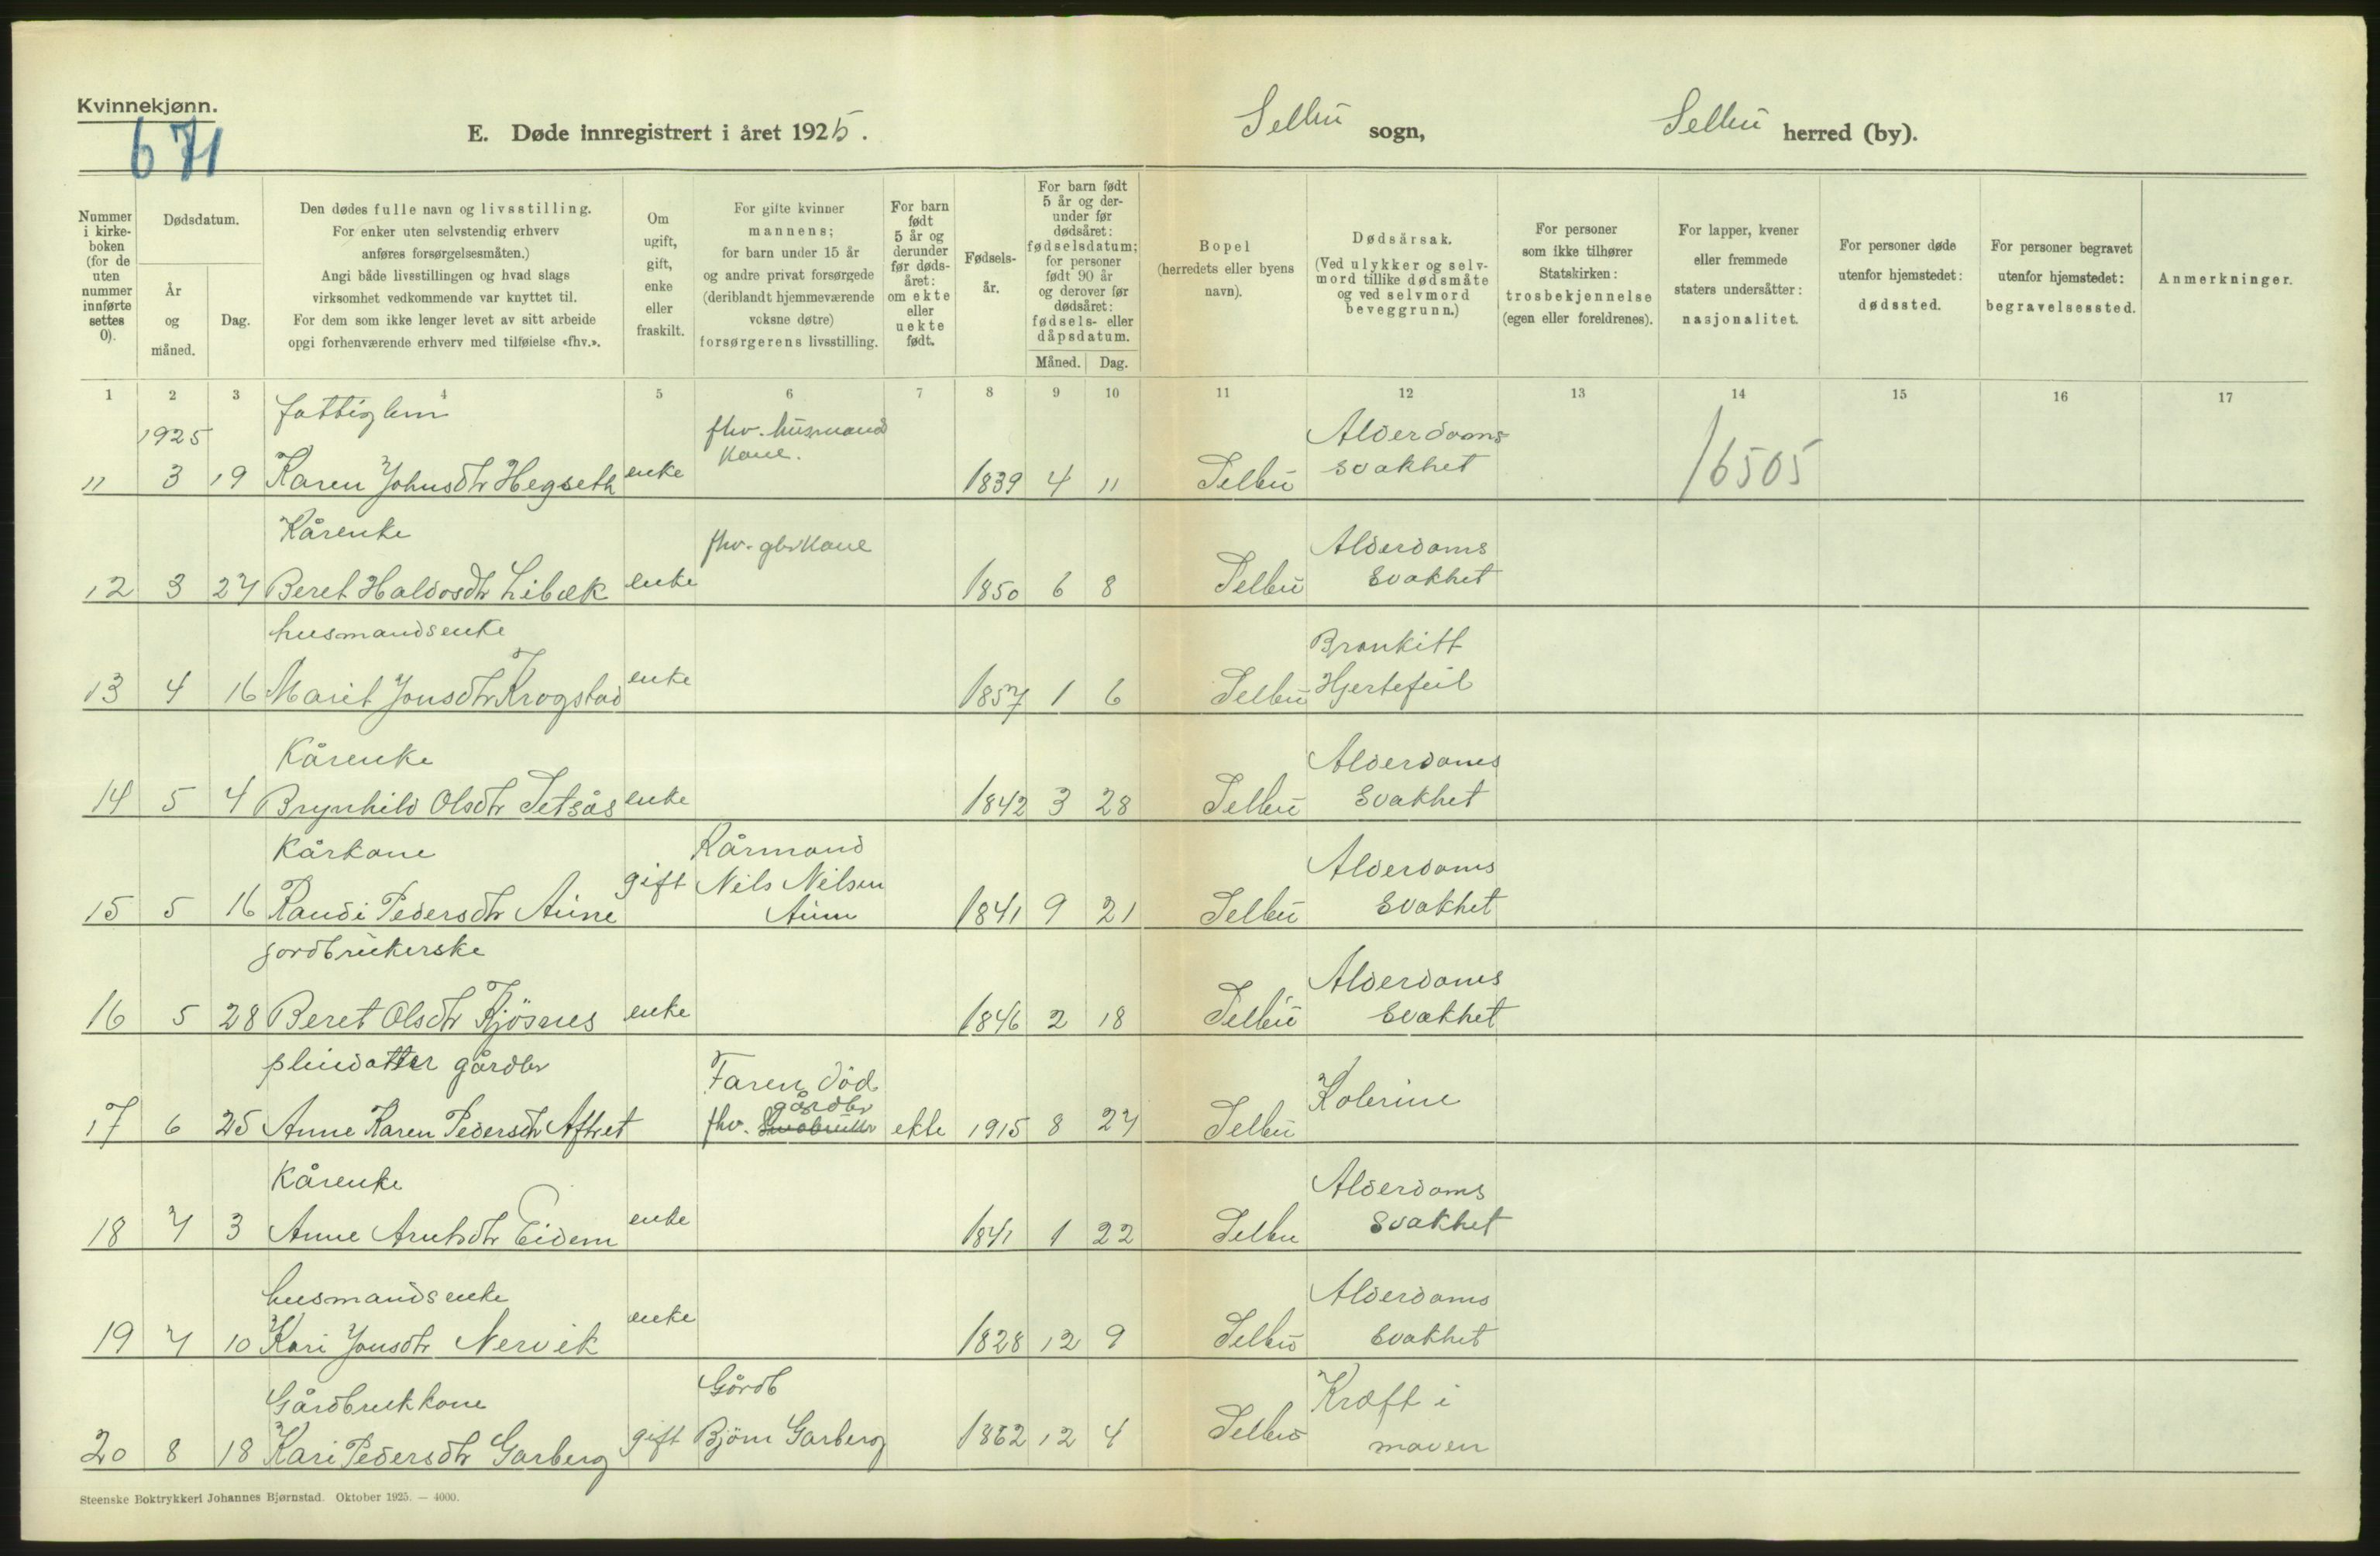 Kvinnekjønn.
671
E. Døde innregistrert i året 1925.
Selbu sogn,
Selbu herred (by).
Nummer i kirke-boken (for de uten nummer innførte settes 0).
Dødsdatum.
År og måned.
Dag.
Den dødes fulle navn og livsstilling.
For enker uten selvstendig erhverv
anføres forsørgelsesmåten.)
Angi både livsstillingen og hvad slags
virksomhet vedkommende var knyttet til.
For dem som ikke lenger levet av sitt arbeide
opgi forhenværende erhverv med tilføielse «fhv.».
Om ugift, gift, enke eller fraskilt.
For gifte kvinner
mannens;
for barn under 15 år
og andre privat forsørgede
(deriblandt hjemmeværende
voksne døtre)
forsørgerens livsstilling.
For barn født 5 år og derunder før døds-året: om ekte eller uekte født.
Fødsels-år.
For barn født
5 år og der-
under før
dødsåret:
fødselsdatum;
for personer
født 90 år
og derover før
dødsåret:
fødsels- eller
dåpsdatum.
Måned. Dag.
Bopel
(herredets eller byens
navn).
Dødsårsak.
(Ved ulykker og selv-
mord tillike dødsmåte
og ved selvmord
beveggrunn.)
For personer
som ikke tilhører
Statskirken:
trosbekjennelse
(egen eller foreldrenes).
For lapper, kvener
eller fremmede
staters undersåtter:
nasjonalitet.
For personer døde
utenfor hjemstedet:
dødssted.
For personer begravet
utenfor hjemstedet:
begravelsessted.
Anmerkninger.
1 2 3 4 5 6 7 8 9 10 11 12 13 14 15 16 17
1925 fattiglem fhv. husmand Alderdoms
kone. svakhet 16505
11 3 19 Karen Johnsdtr Hegseth enke 1839 4 11 Selbu
Kårenke fhv. gbrkone Alderdoms
12 3 27 Beret Haldosdtr Libæk enke 1850 6 8 Selbu Svakhet
husmandsenke Bronkitt
13 4 16 Marit Jonsdtr Krogstad enke 1857 1 6 Selbu Hjertefeil
Kårenke Alderdoms
14 5 4 Brynhild Olsdtr Setsås enke 1842 3 28 Selbu Svakhet
Kårkone Kårmand Alderdoms
gift Nils Nilsen
15 5 16 Randi Pedersdtr Aune Aune 1841 9 21 Selbu Svakhet
jordbrukerske Alderdoms
16 5 28 Beret Olsdtr Kjösnes enke 1846 2 18 Selbu Svakhet
pleiedatter gårdbr Faren död
gårdbr Kolerine
17 6 25 Anne Karen Pedersdtr Aftret fhv. ekte 1915 8 27 Selbu
Kårenke Alderdoms
18 7 3 Anne Arntsdtr Eidem enke 1841 1 22 Selbu Svakhet
husmandsenke Alderdoms
19 7 10 Kari Jonsdtr Nervik enke 1828 12 9 Selbu Svakhet
Gårdbrukkone Gårdb Kræft i
20 8 18 Kari Pedersdtr Garberg gift Björn Garberg 1862 12 4 Selbu maven
Steenske Boktrykkeri Johannes Bjørnstad. Oktober 1925. — 4000.